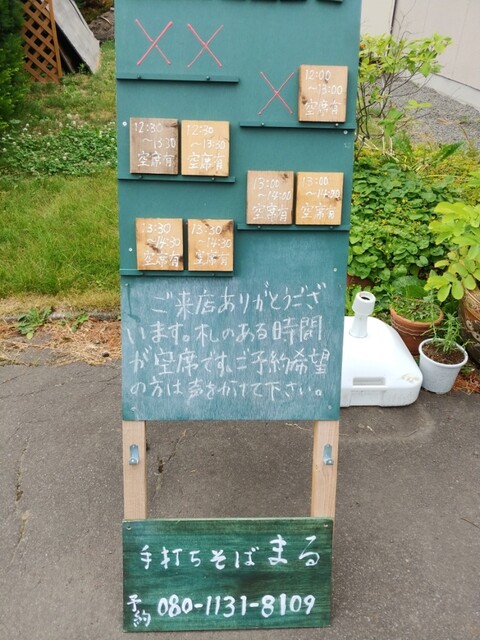 12:00
～13:00
空席有
12:30
～13:30
空席有
12:30
～13:30
空席有
13:00
～14:00
空席有
13:00
～14:00
空席有
13:30
～14:30
空席有
13:30
～14:30
空席有
ご来店ありがとうござ
います。札のある時間
が空席です。ご予約希望
の方は声をかけて下さい。
手打ちそば まる
予約 080-1131-8109